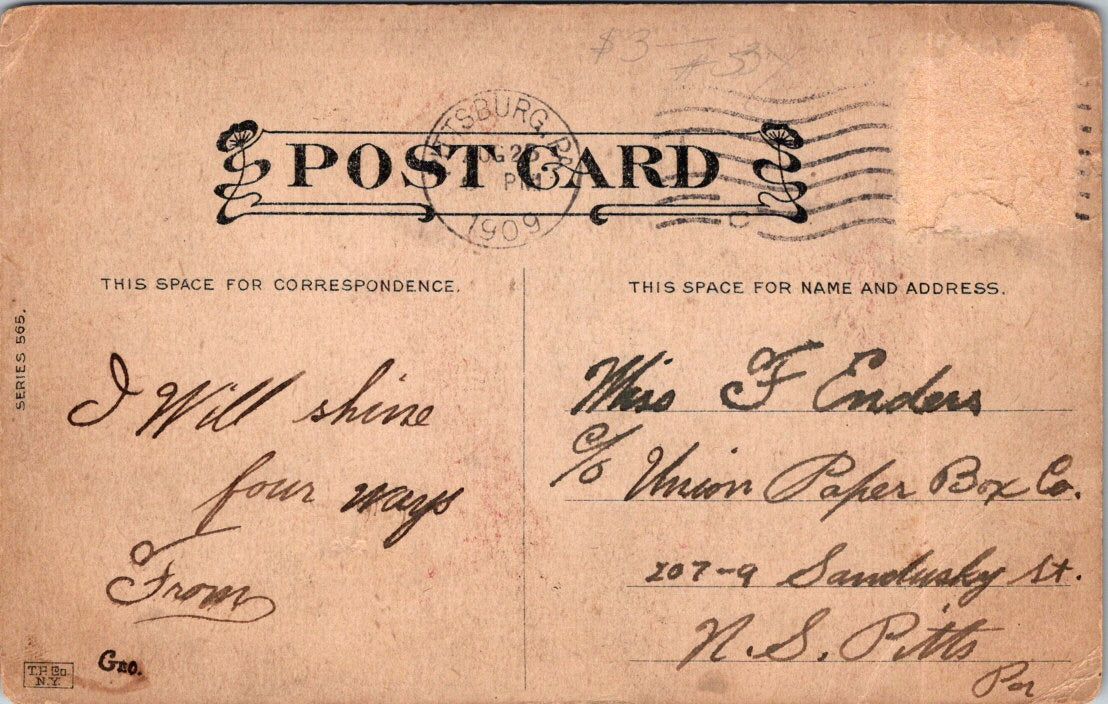 $3
POST CARD
PITTSBURG, PA.
AUG 25
PM
1909
C
THIS SPACE FOR CORRESPONDENCE.
THIS SPACE FOR NAME AND ADDRESS.
SERIES 565.
I Will shine
four ways
From
Geo.
T.P. & Co.
N.Y.
Miss F Enders
c/o Union Paper Box Co.
207-9 Sandusky St.
N. S. Pitts
Pa